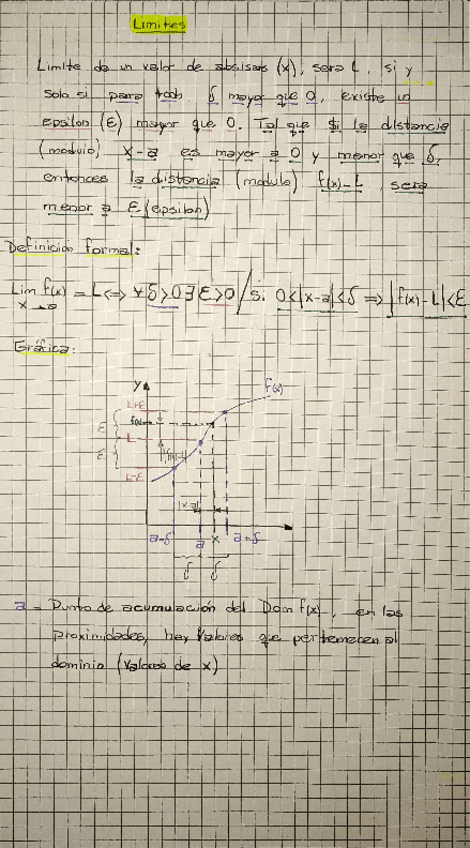 Limites
Limite de un valor de absisas (x), sera L, si y
solo si para todo δ mayor que 0, existe un
epsilon (ε) mayor que 0. Tal que si la distancia
(modulo) x-a es mayor a 0 y menor que δ,
entonces la distancia (modulo) f(x)-L, sera
menor a ε (epsilon)
Definición formal:
Lim f(x) = L <=> ∀ δ>0 ∃ ε>0 / si 0<|x-a|<δ => |f(x)-L|<ε
x→a
Gráfica:
y
f(x)
L+ε
f(x)
ε
L
|f(x)-L|
ε
L-ε
|x-a|
a-δ a x a+δ
δ δ
a = Punto de acumulación del Dom f(x), en las
proximidades, hay valores que pertenecen al
dominio (valores de x)